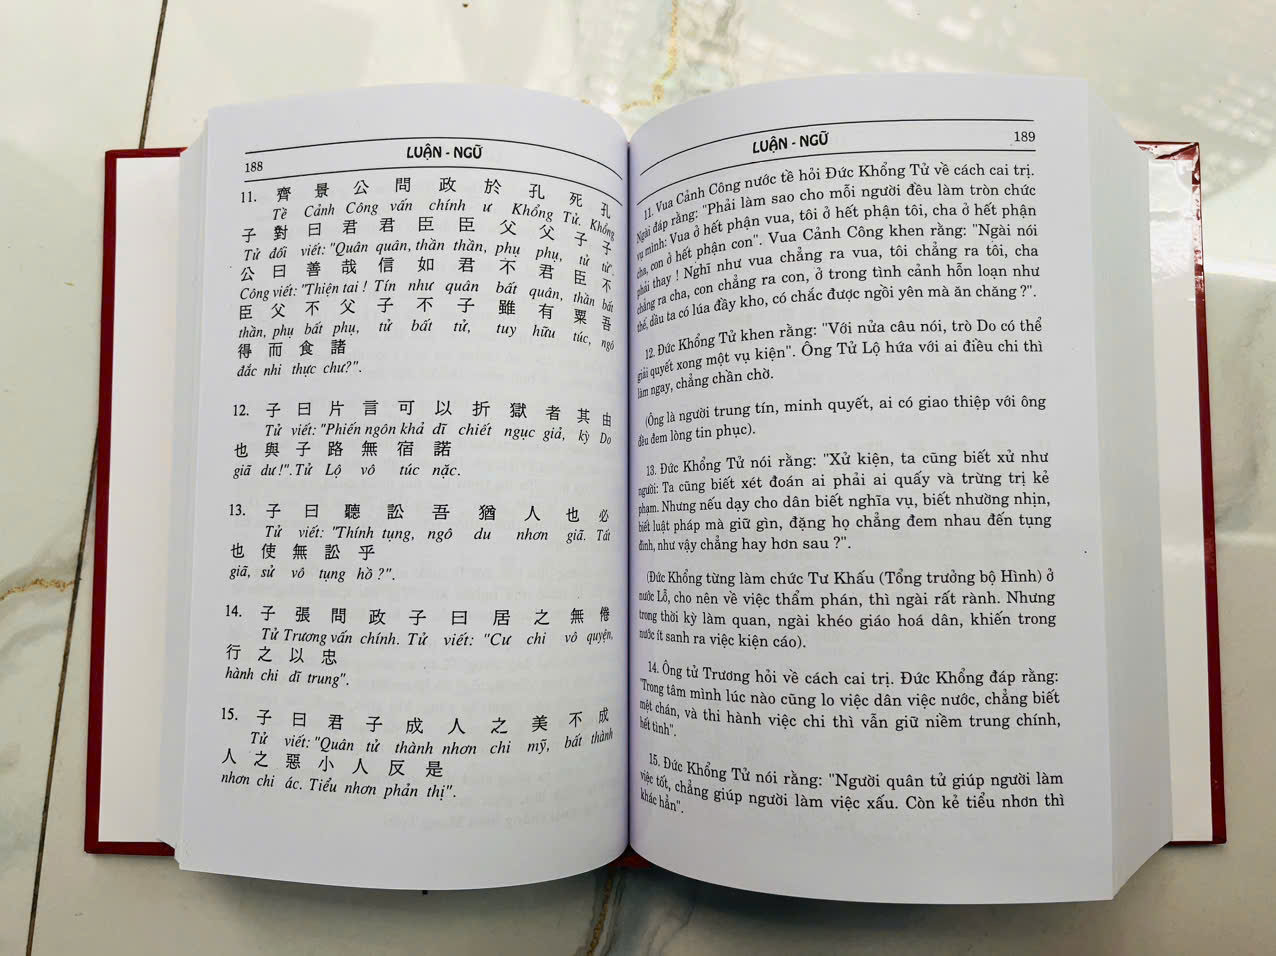 188
LUẬN - NGỮ
11. 齊 景 公 問 政 於 孔 死 孔
Tề Cảnh Công vấn chính ư Khổng Tử. Khổng
子 對 曰 君 君 臣 臣 父 父 子 子
Tử đối viết: "Quân quân, thần thần, phụ phụ, tử tử".
公 曰 善 哉 信 如 君 不 君 臣 不
Công viết: "Thiện tai ! Tín như quân bất quân, thần bất
臣 父 不 父 子 不 子 雖 有 粟 吾
thần, phụ bất phụ, tử bất tử, tuy hữu túc, ngô
得 而 食 諸
đắc nhi thực chư?".
12. 子 曰 片 言 可 以 折 獄 者 其 由
Tử viết: "Phiến ngôn khả dĩ chiết ngục giả, kỳ Do
也 與 子 路 無 宿 諾
giã dư !". Tử Lộ vô túc nặc.
13. 子 曰 聽 訟 吾 猶 人 也 必
Tử viết: "Thính tụng, ngô du nhơn giã. Tất
也 使 無 訟 乎
giã, sử vô tụng hồ ?".
14. 子 張 問 政 子 曰 居 之 無 倦
Tử Trương vấn chính. Tử viết: "Cư chi vô quyện,
行 之 以 忠
hành chi dĩ trung".
15. 子 曰 君 子 成 人 之 美 不 成
Tử viết: "Quân tử thành nhơn chi mỹ, bất thành
人 之 惡 小 人 反 是
nhơn chi ác. Tiểu nhơn phản thị".
LUẬN - NGỮ
189
11. Vua Cảnh Công nước tề hỏi Đức Khổng Tử về cách cai trị.
Ngài đáp rằng: "Phải làm sao cho mỗi người đều làm tròn chức
vụ mình: Vua ở hết phận vua, tôi ở hết phận tôi, cha ở hết phận
cha, con ở hết phận con". Vua Cảnh Công khen rằng: "Ngài nói
phải thay ! Nghĩ như vua chẳng ra vua, tôi chẳng ra tôi, cha
chẳng ra cha, con chẳng ra con, ở trong tình cảnh hỗn loạn như
thế, dầu ta có lúa đầy kho, có chắc được ngồi yên mà ăn chăng ?".
12. Đức Khổng Tử khen rằng: "Với nửa câu nói, trò Do có thể
giải quyết xong một vụ kiện". Ông Tử Lộ hứa với ai điều chi thì
làm ngay, chẳng chần chờ.
(Ông là người trung tín, minh quyết, ai có giao thiệp với ông
đều đem lòng tin phục).
13. Đức Khổng Tử nói rằng: "Xử kiện, ta cũng biết xử như
người: Ta cũng biết xét đoán ai phải ai quấy và trừng trị kẻ
phạm. Nhưng nếu dạy cho dân biết nghĩa vụ, biết nhường nhịn,
biết luật pháp mà giữ gìn, đặng họ chẳng đem nhau đến tụng
đình, như vậy chẳng hay hơn sau ?".
(Đức Khổng từng làm chức Tư Khấu (Tổng trưởng bộ Hình) ở
nước Lỗ, cho nên về việc thẩm phán, thì ngài rất rành. Nhưng
trong thời kỳ làm quan, ngài khéo giáo hoá dân, khiến trong
nước ít sanh ra việc kiện cáo).
14. Ông tử Trương hỏi về cách cai trị. Đức Khổng đáp rằng:
"Trong tâm mình lúc nào cũng lo việc dân việc nước, chẳng biết
mệt chán, và thi hành việc chi thì vẫn giữ niềm trung chính,
hết tình".
15. Đức Khổng Tử nói rằng: "Người quân tử giúp người làm
việc tốt, chẳng giúp người làm việc xấu. Còn kẻ tiểu nhơn thì
khác hẳn".